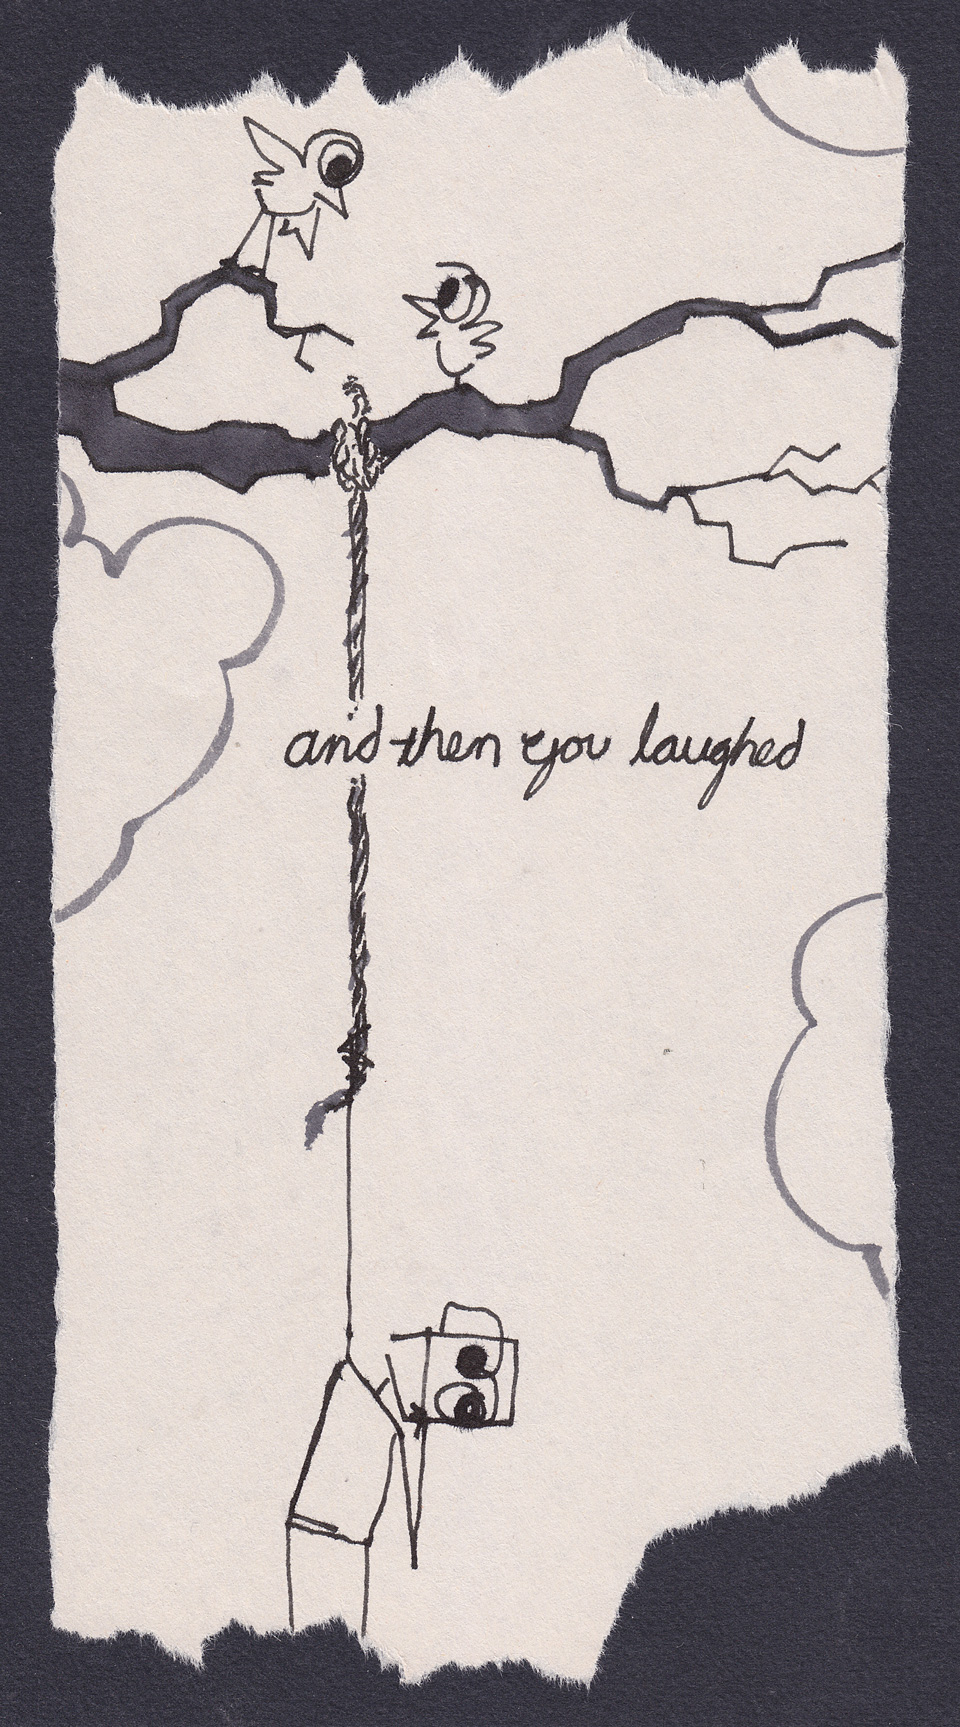 and then you laughed